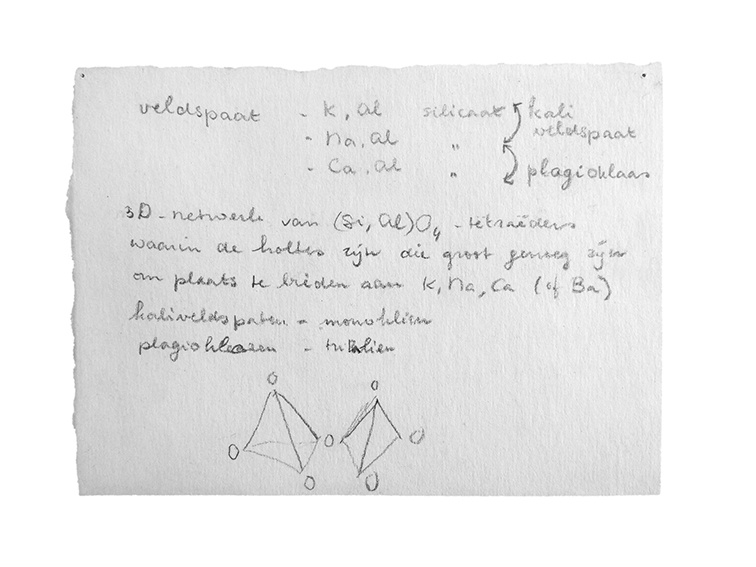 veldspaat - K, Al silicaat kali
veldspaat
- Na, Al "
- Ca, Al " plagioklaas
3D-netwerk van (Si, Al)O₄ - tetraëders
waarin de holtes zijn die groot genoeg zijn
om plaats te bieden aan K, Na, Ca (of Ba)
kaliveldspaten - monoklien
plagioklazen - triklien
O O
O O O
O O